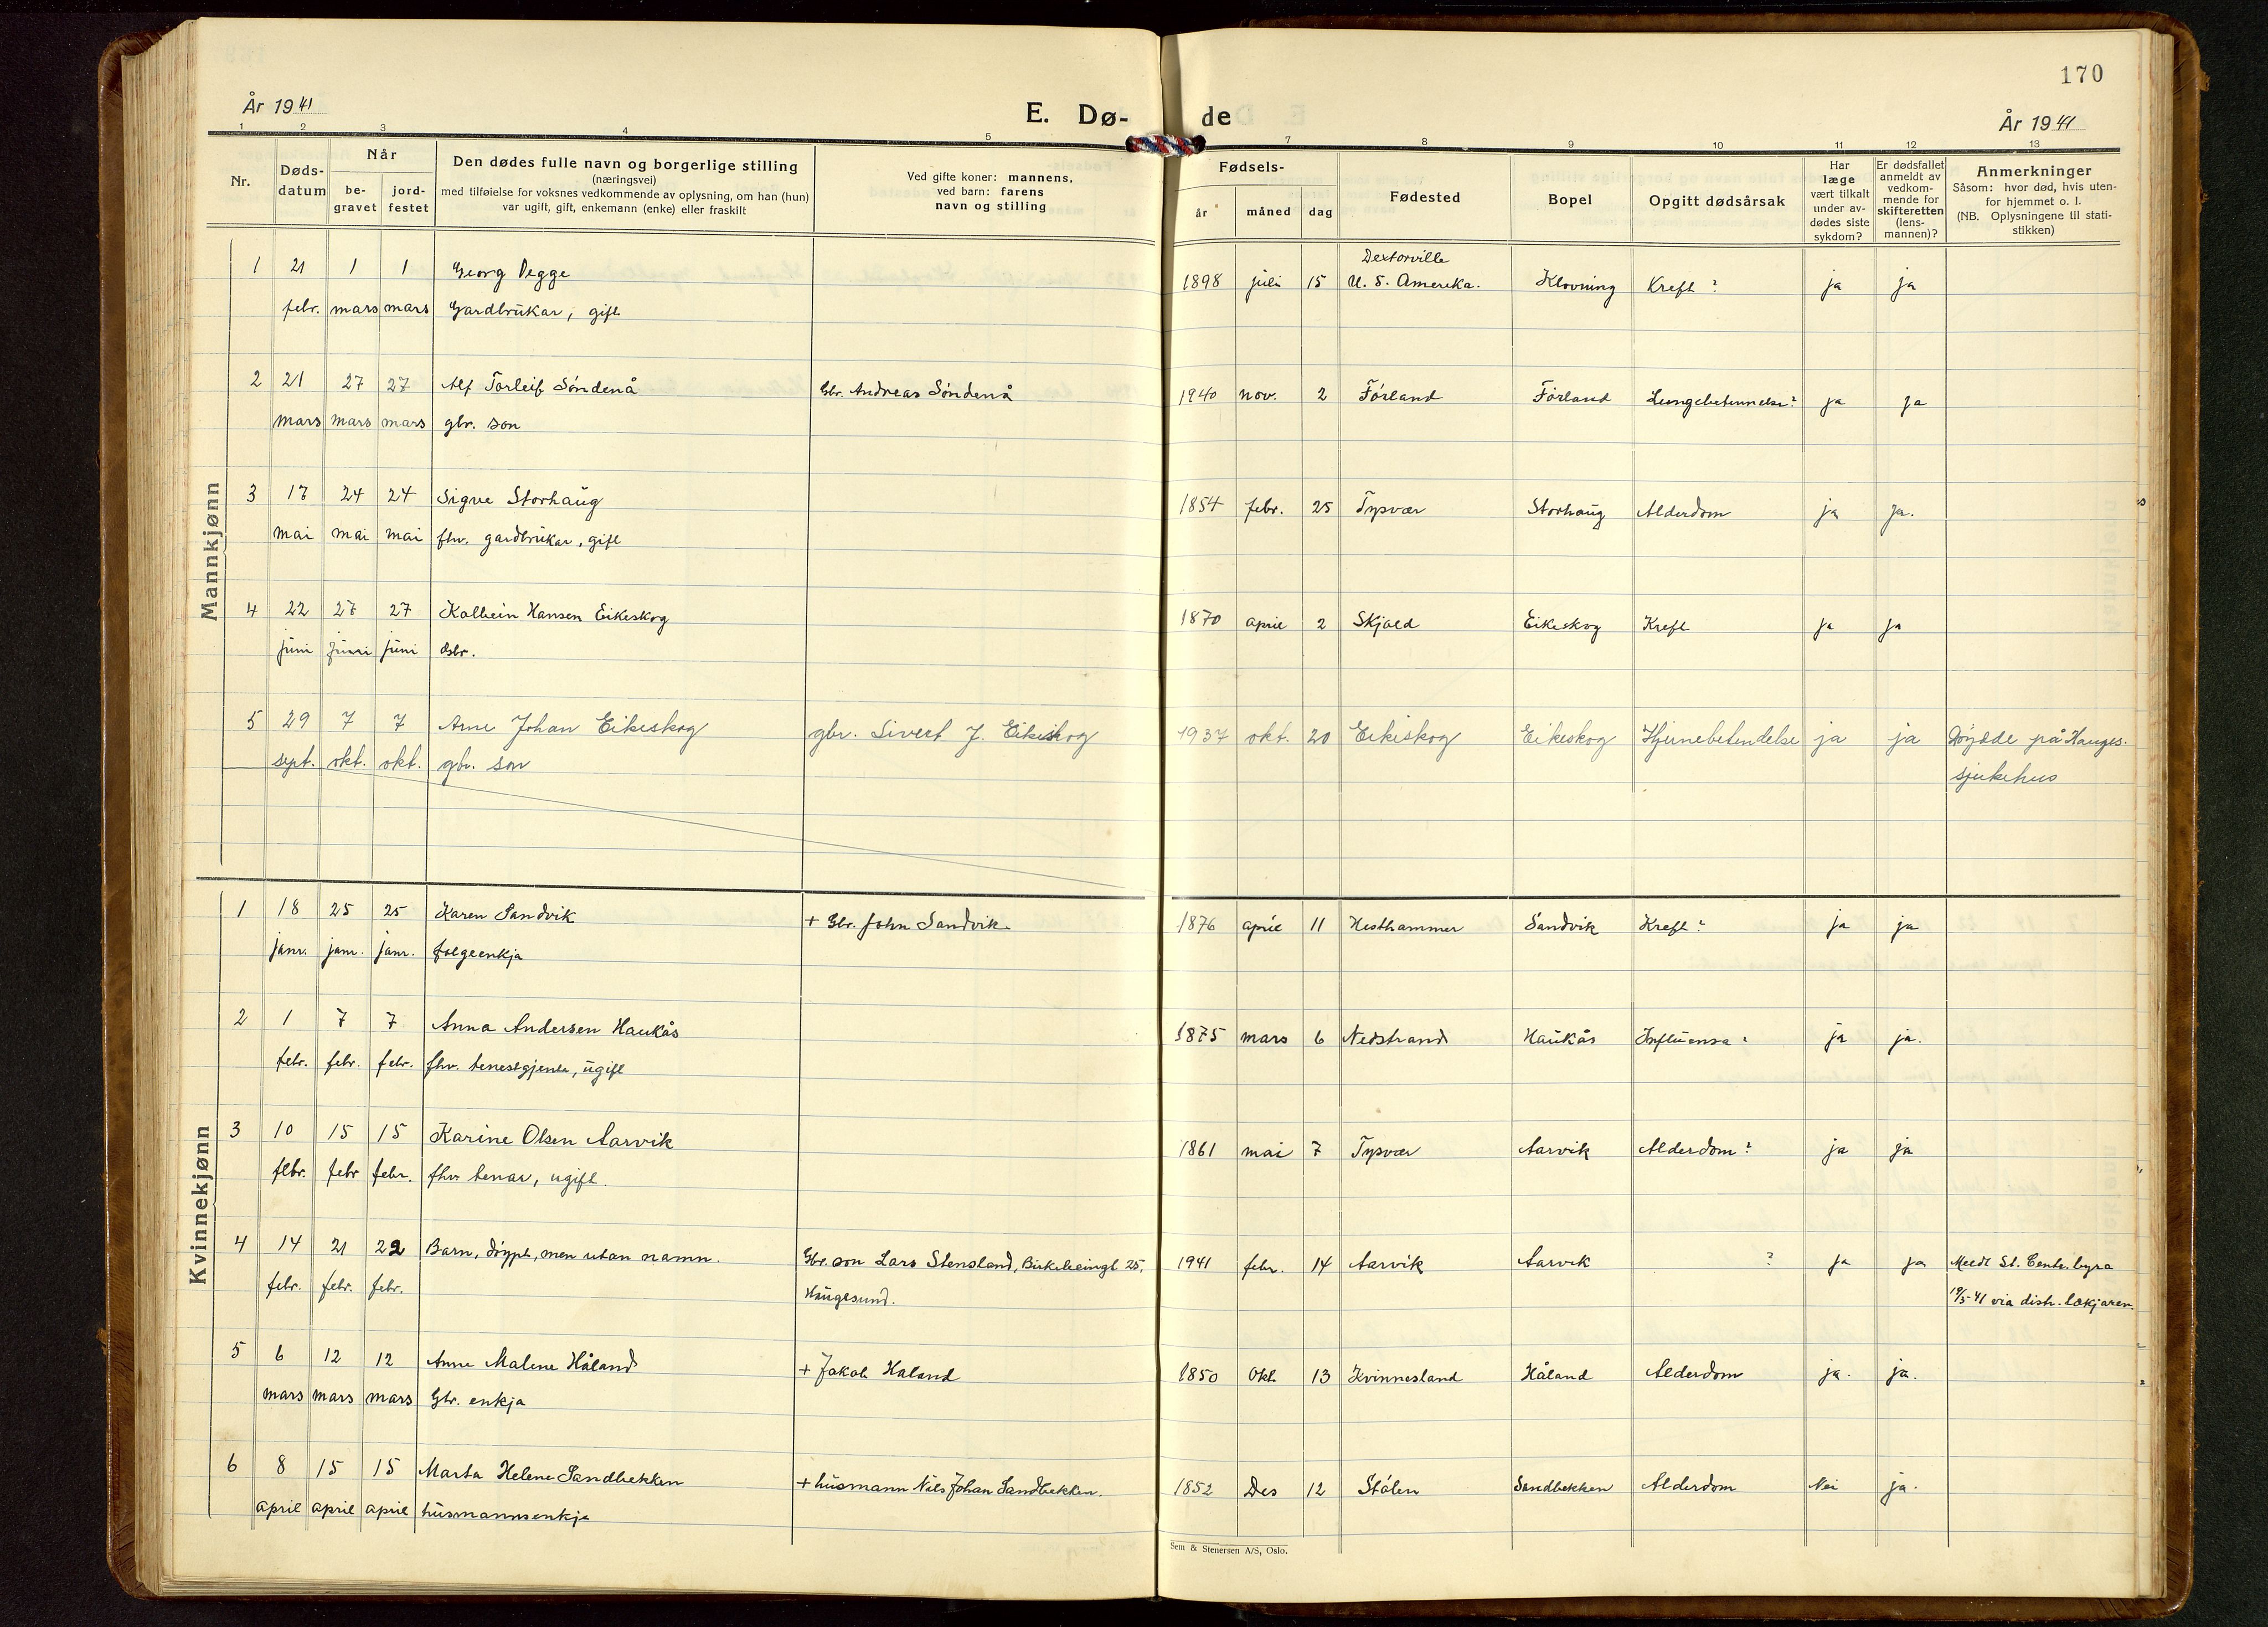 170
År 1941
E. Dø-de
År 1941
1 2 3 4 5 7 8 9 10 11 12 13
Nr.
Døds-
datum
Når
be-
gravet
jord-
festet
Den dødes fulle navn og borgerlige stilling
(næringsvei)
med tilføielse for voksnes vedkommende av oplysning, om han (hun)
var ugift, gift, enkemann (enke) eller fraskilt
Ved gifte koner: mannens,
ved barn: farens
navn og stilling
Fødsels-
år måned dag
Fødested
Bopel
Opgitt dødsårsak
Har
læge
vært tilkalt
under av-
dødes siste
sykdom?
Er dødsfallet
anmeldt av
vedkom-
mende for
skifteretten
(lens-
mannen)?
Anmerkninger
Såsom: hvor død, hvis uten-
for hjemmet o. l.
(NB. Oplysningene til stati-
stikken)
Mannkjønn
Dextorville
1 21 1 1 Georg Vegge 1898 juli 15 U. S. Amerika. Klovning Kreft ? ja ja
febr. mars mars Gardbrukar, gift
2 21 27 27 Alf Torleif Søndenå Gbr. Andreas Søndenå 1940 nov. 2 Førland Førland Lungebetennelse? ja ja
mars mars mars gbr. son
3 17 24 24 Sigve Storhaug 1854 febr. 25 Tysvær Storhaug Alderdom ja ja.
mai mai mai fhv. gardbrukar, gift
4 22 27 27 Kolbein Hansen Eikeskog 1870 april 2 Skjold Eikeskog Kreft ja ja
juni juni juni
5 29 7 7 Arne Johan Eikeskog gbr. Sivert J. Eikeskog 1937 okt. 20 Eikeskog Eikeskog Hjernebetendelse ja ja Døydde på Hauges.
sept. okt. okt. gbr. son sjukehus
Kvinnekjønn
1 18 25 25 Karen Sandvik + Gbr. John Sandvik. 1876 april 11 Hesthammer Sandvik Kreft ? ja ja
janr. janr. janr. folgeenkja
2 1 7 7 Anna Andersen Haukås 1875 mars 6 Nedstrand Haukås Influensa ? ja ja.
febr. febr. febr. fhv. tenestgjente, ugift
3 10 15 15 Karine Olsen Aarvik 1861 mai 7 Tysvær Aarvik Alderdom ? ja ja
febr. febr febr. fhv tenar, ugift.
4 14 21 22 Barn, døypt, men utan namn. Gbr. son Lars Stensland, Birkelseingt 25, 1941 febr. 14 Aarvik Aarvik ? ja ja Meldt St. Centr. byrå
febr. febr. febr. Haugesund. 19/5-41 via distr. lækjaren.
5 6 12 12 Anne Malene Håland + Jakob Haland 1850 Okt 13 Kvinnesland Håland Alderdom ja. ja.
mars mars mars Gbr. enkja
6 8 15 15 Marta Helene Sandbekken + husmann Nils Johan Sandbekken. 1852 Des 12 Stölen Sandbekken Alderdom Nei ja.
april april april husmannsenkje
Sem & Stenersen A/S, Oslo.